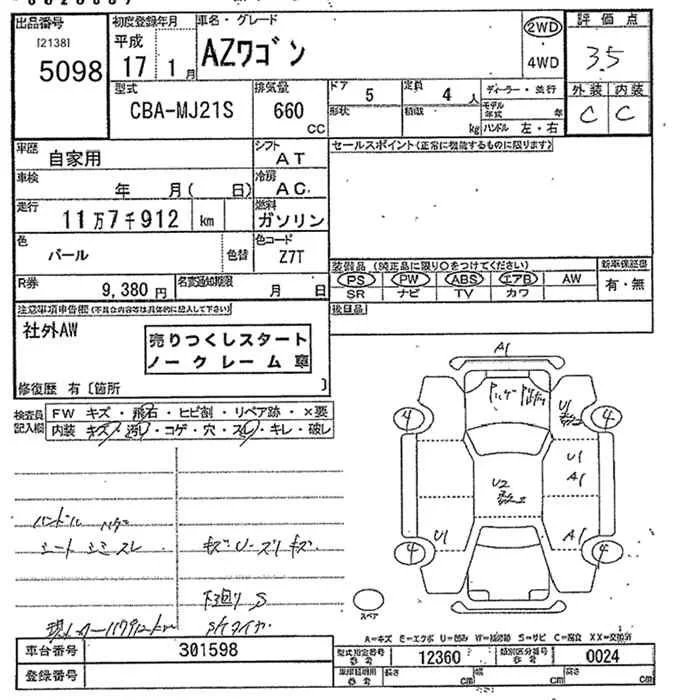 出品番号 初度登録年月 車名・グレード 2WD 評価点
[2138] 平成 AZワゴン 3.5
5098 17 1月 4WD
型式 排気量 ドア 5 定員 4人 ディーラー・並行 外装 内装
CBA-MJ21S 660 CC 形状 積載 kg モデル年式 年 C C
ハンドル 左・右
車歴 自家用 シフト AT セールスポイント(正常に機能するものに限ります)
車検 年 月( 日) 冷房 AC
走行 11万7千912 km 燃料 ガソリン
色 パール 色替 色コード Z7T
装備品 (純正品に限り○をつけてください) 新車保証書
R券 9,380円 名変通知期限 月 日 PS PW ABS エアB AW 有・無
SR ナビ TV カワ
注意事項申告欄(不具合内容等は具体的に記入して下さい) 後日品
社外AW 売りつくしスタート
ノークレーム車
修復歴 有〔箇所 〕
検査員記入欄 FW キズ・飛石・ヒビ割・リペア跡・×要
内装 キズ・汚れ・コゲ・穴・スレ・キレ・破レ
A1
4 4
U1
U1
A1
U2
U1 A1
4 4
ハンドル ハゲ
シート シミ スレ キズ・U・スリキズ
下廻り S
スペア
A=キズ E=エクボ U=凹み W=補修跡 S=サビ C=腐食 XX=交換済
車台番号 301598 型式指定番号 参考 12360 類別区分番号 参考 0024
登録番号 車庫証明用 参考 長さ cm 幅 cm 高さ cm